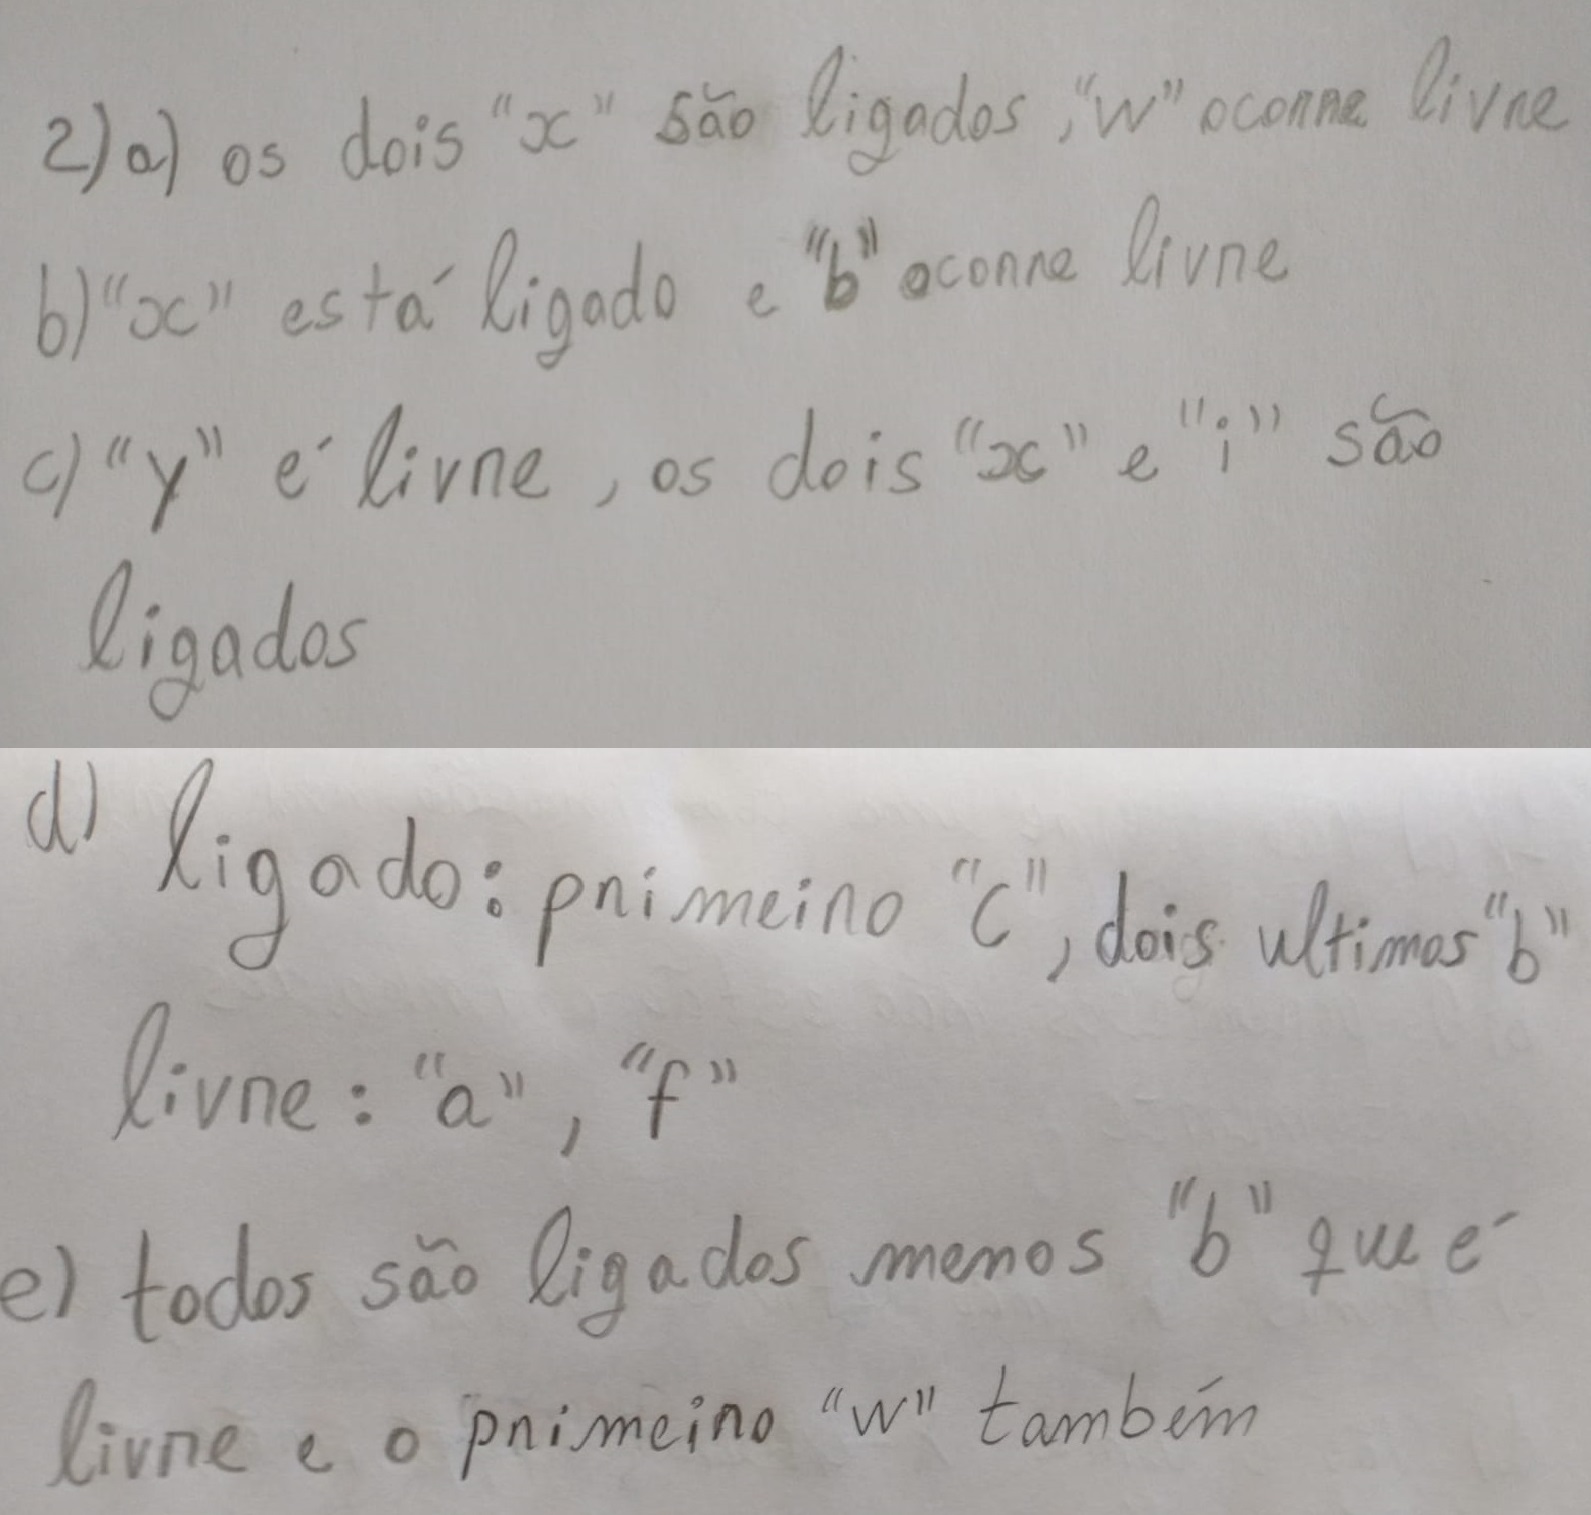 2) a) os dois "x" são ligados, "w" ocorre livre
b) "x" está ligado e "b" ocorre livre
c) "y" é livre, os dois "x" e "i" são
ligados
d) ligado: primeiro "c", dois ultimos "b"
livre: "a", "f"
e) todos são ligados menos "b" que é
livre e o primeiro "w" também